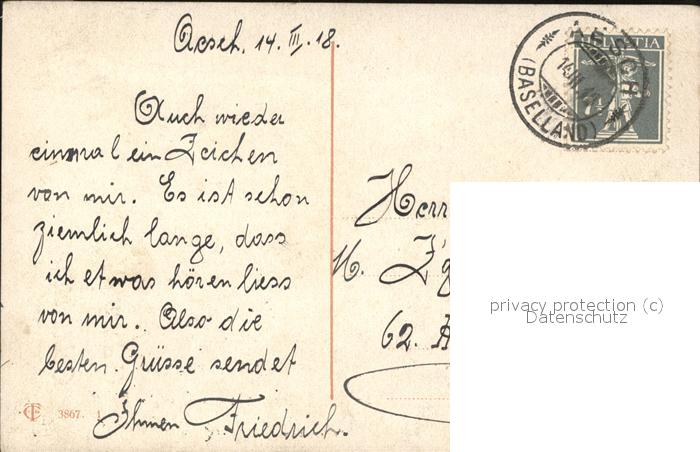 Aesch. 14. III. 18.
Auch wieder
einmal ein Zeichen
von mir. Es ist schon
ziemlich lange, dass
ich etwas hören liess
von mir. Also die
besten Grüsse sendet
Ihnen Friedrich.
3867. 1
AESCH
(BASELLAND)
HELVETIA
7½
Herr
H. Zg
62.
privacy protection (c)
Datenschutz